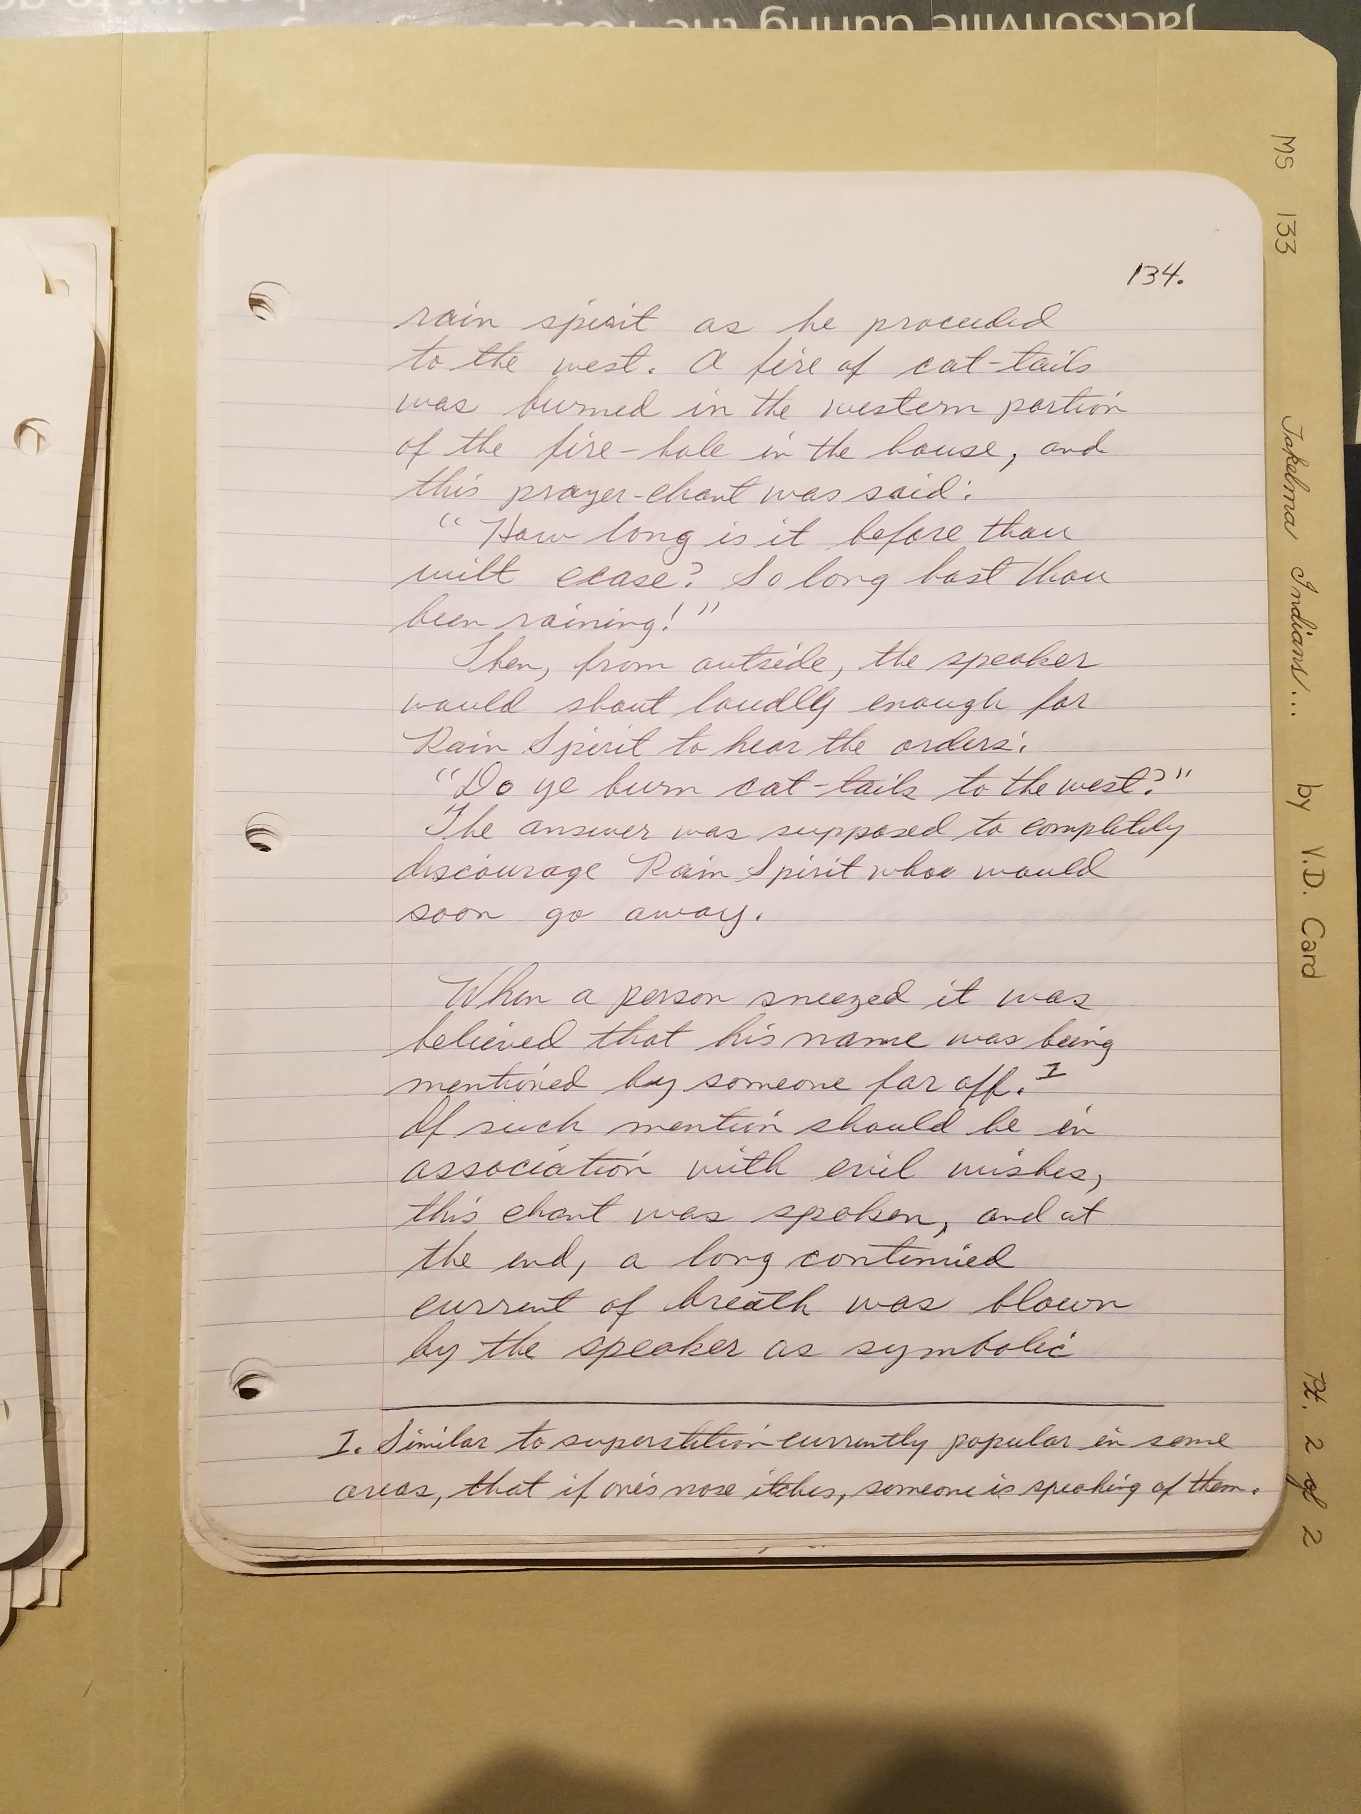 Jacksonville during the
134.
rain spirit as he proceeded
to the west. A fire of cat-tails
was burned in the western portion
of the fire-hole in the house, and
this prayer-chant was said:
"How long is it before thou
wilt cease? So long hast thou
been raining!"
Then, from outside, the speaker
would shout loudly enough for
Rain Spirit to hear the orders:
"Do ye burn cat-tails to the west?"
The answer was supposed to completely
discourage Rain Spirit who would
soon go away.
When a person sneezed it was
believed that his name was being
mentioned by someone far off.¹
If such mention should be in
association with evil wishes,
this chant was spoken, and at
the end, a long continued
current of breath was blown
by the speaker as symbolic
1. Similar to superstition currently popular in some
areas, that if one's nose itches, someone is speaking of them.
MS 133 Takelma Indians... by V.D. Card Pt. 2 of 2